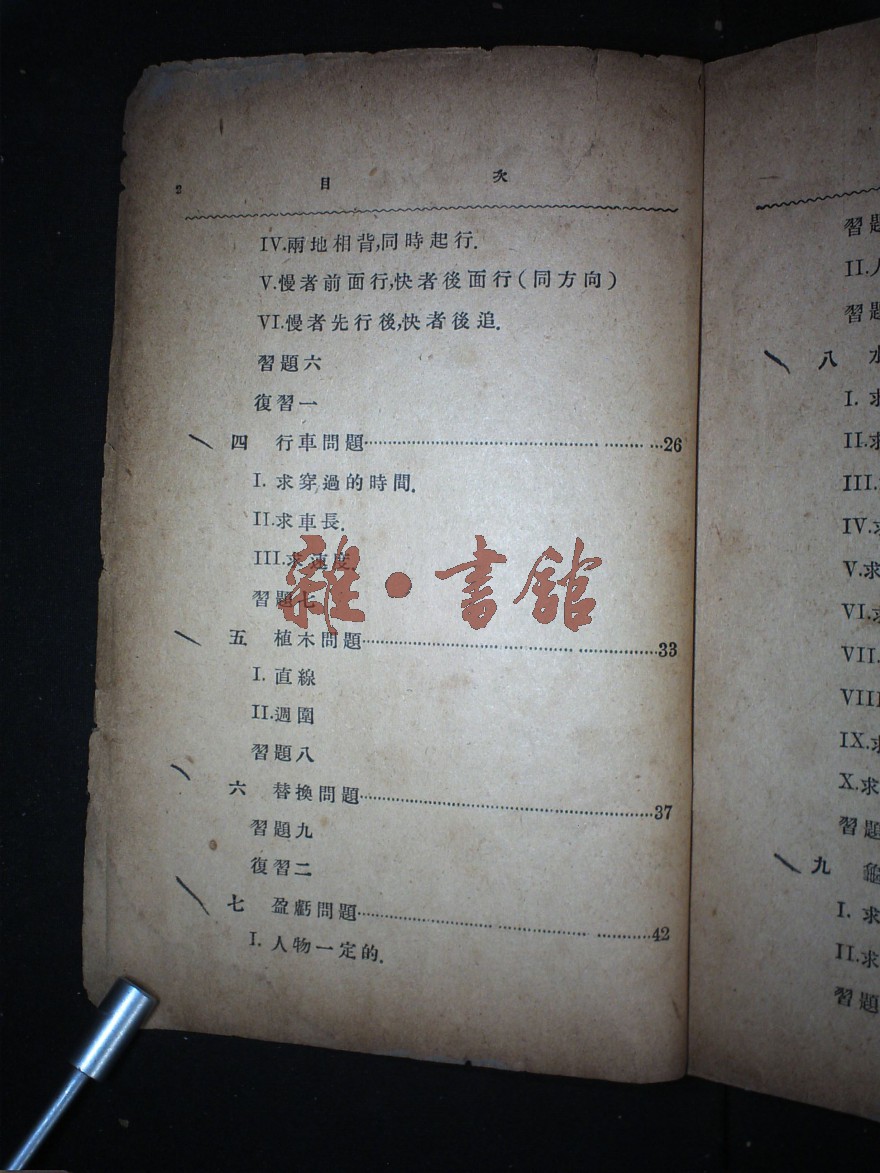 2 目 次
IV.兩地相背,同時起行.
V.慢者前面行,快者後面行(同方向)
VI.慢者先行後,快者後追.
習題六
復習一
四 行車問題……………………………26
I. 求穿過的時間.
II.求車長.
III.求速度.
習題七
五 植木問題……………………………33
I. 直線
II.週圍
習題八
六 替換問題……………………………37
習題九
復習二
七 盈虧問題……………………………42
I. 人物一定的.
雜·書館
習題
II.人
習題
八 水
I. 求
II.求
III.
IV.求
V.求
VI.求
VII.
VIII
IX.求
X.求
習題
九 龜
I. 求
II.求
習題